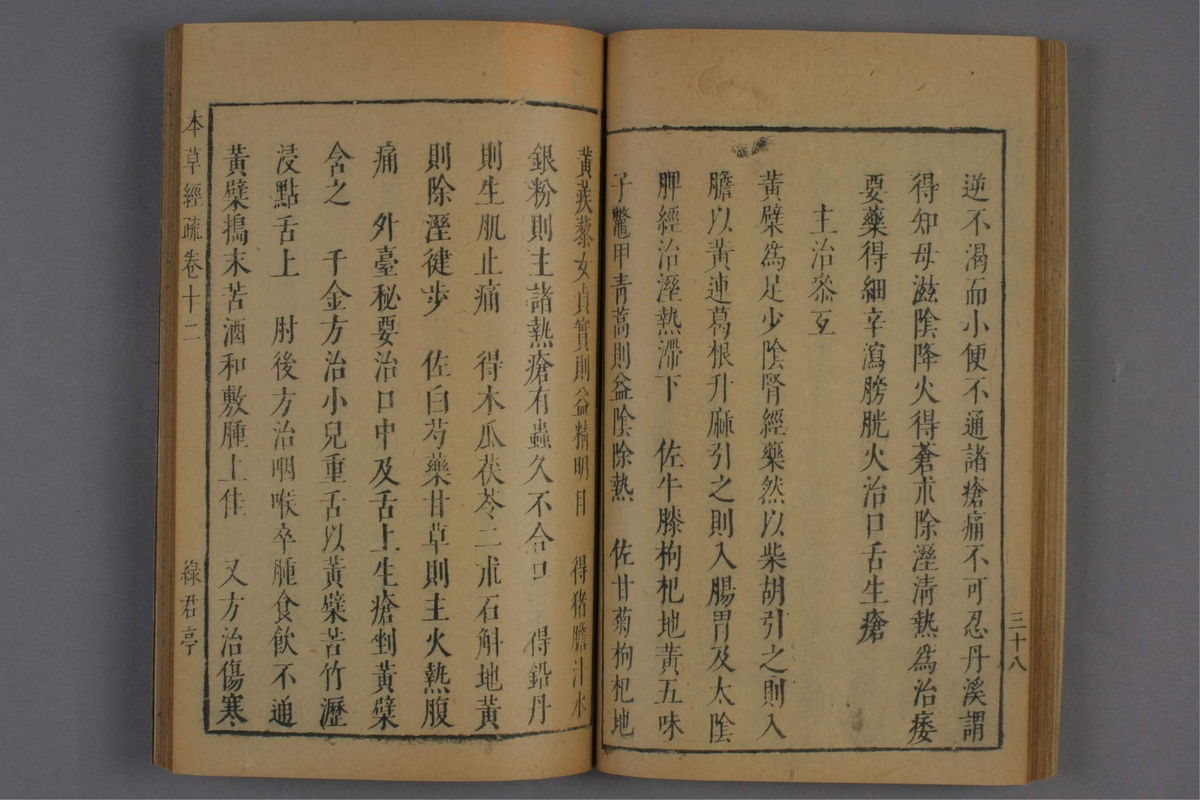 逆不渴而小便不通諸瘡痛不可忍丹溪謂
得知母滋陰降火得蒼朮除溼淸熱爲治痿
要藥得細辛瀉膀胱火治口舌生瘡
主治叅互
黃蘗爲足少陰腎經藥然以柴胡引之則入
膽以黃連葛根升麻引之則入腸胃及太陰
脾經治溼熱滯下 佐牛膝枸杞地黃五味
子鼈甲靑蒿則益陰除熱 佐甘菊枸杞地
三十八
黃蒺藜女貞實則益精明目 得猪膽汁水
銀粉則主諸熱瘡有蟲久不合口 得鉛丹
則生肌止痛 得木瓜茯苓二朮石斛地黃
則除溼健步 佐白芍藥甘草則主火熱腹
痛 外臺秘要治口中及舌上生瘡剉黃蘗
含之 千金方治小兒重舌以黃蘗苦竹瀝
浸點舌上 肘後方治咽喉卒腫食飮不通
黃蘗搗末苦酒和敷腫上佳 又方治傷寒
本草經疏卷十二
綠君亭